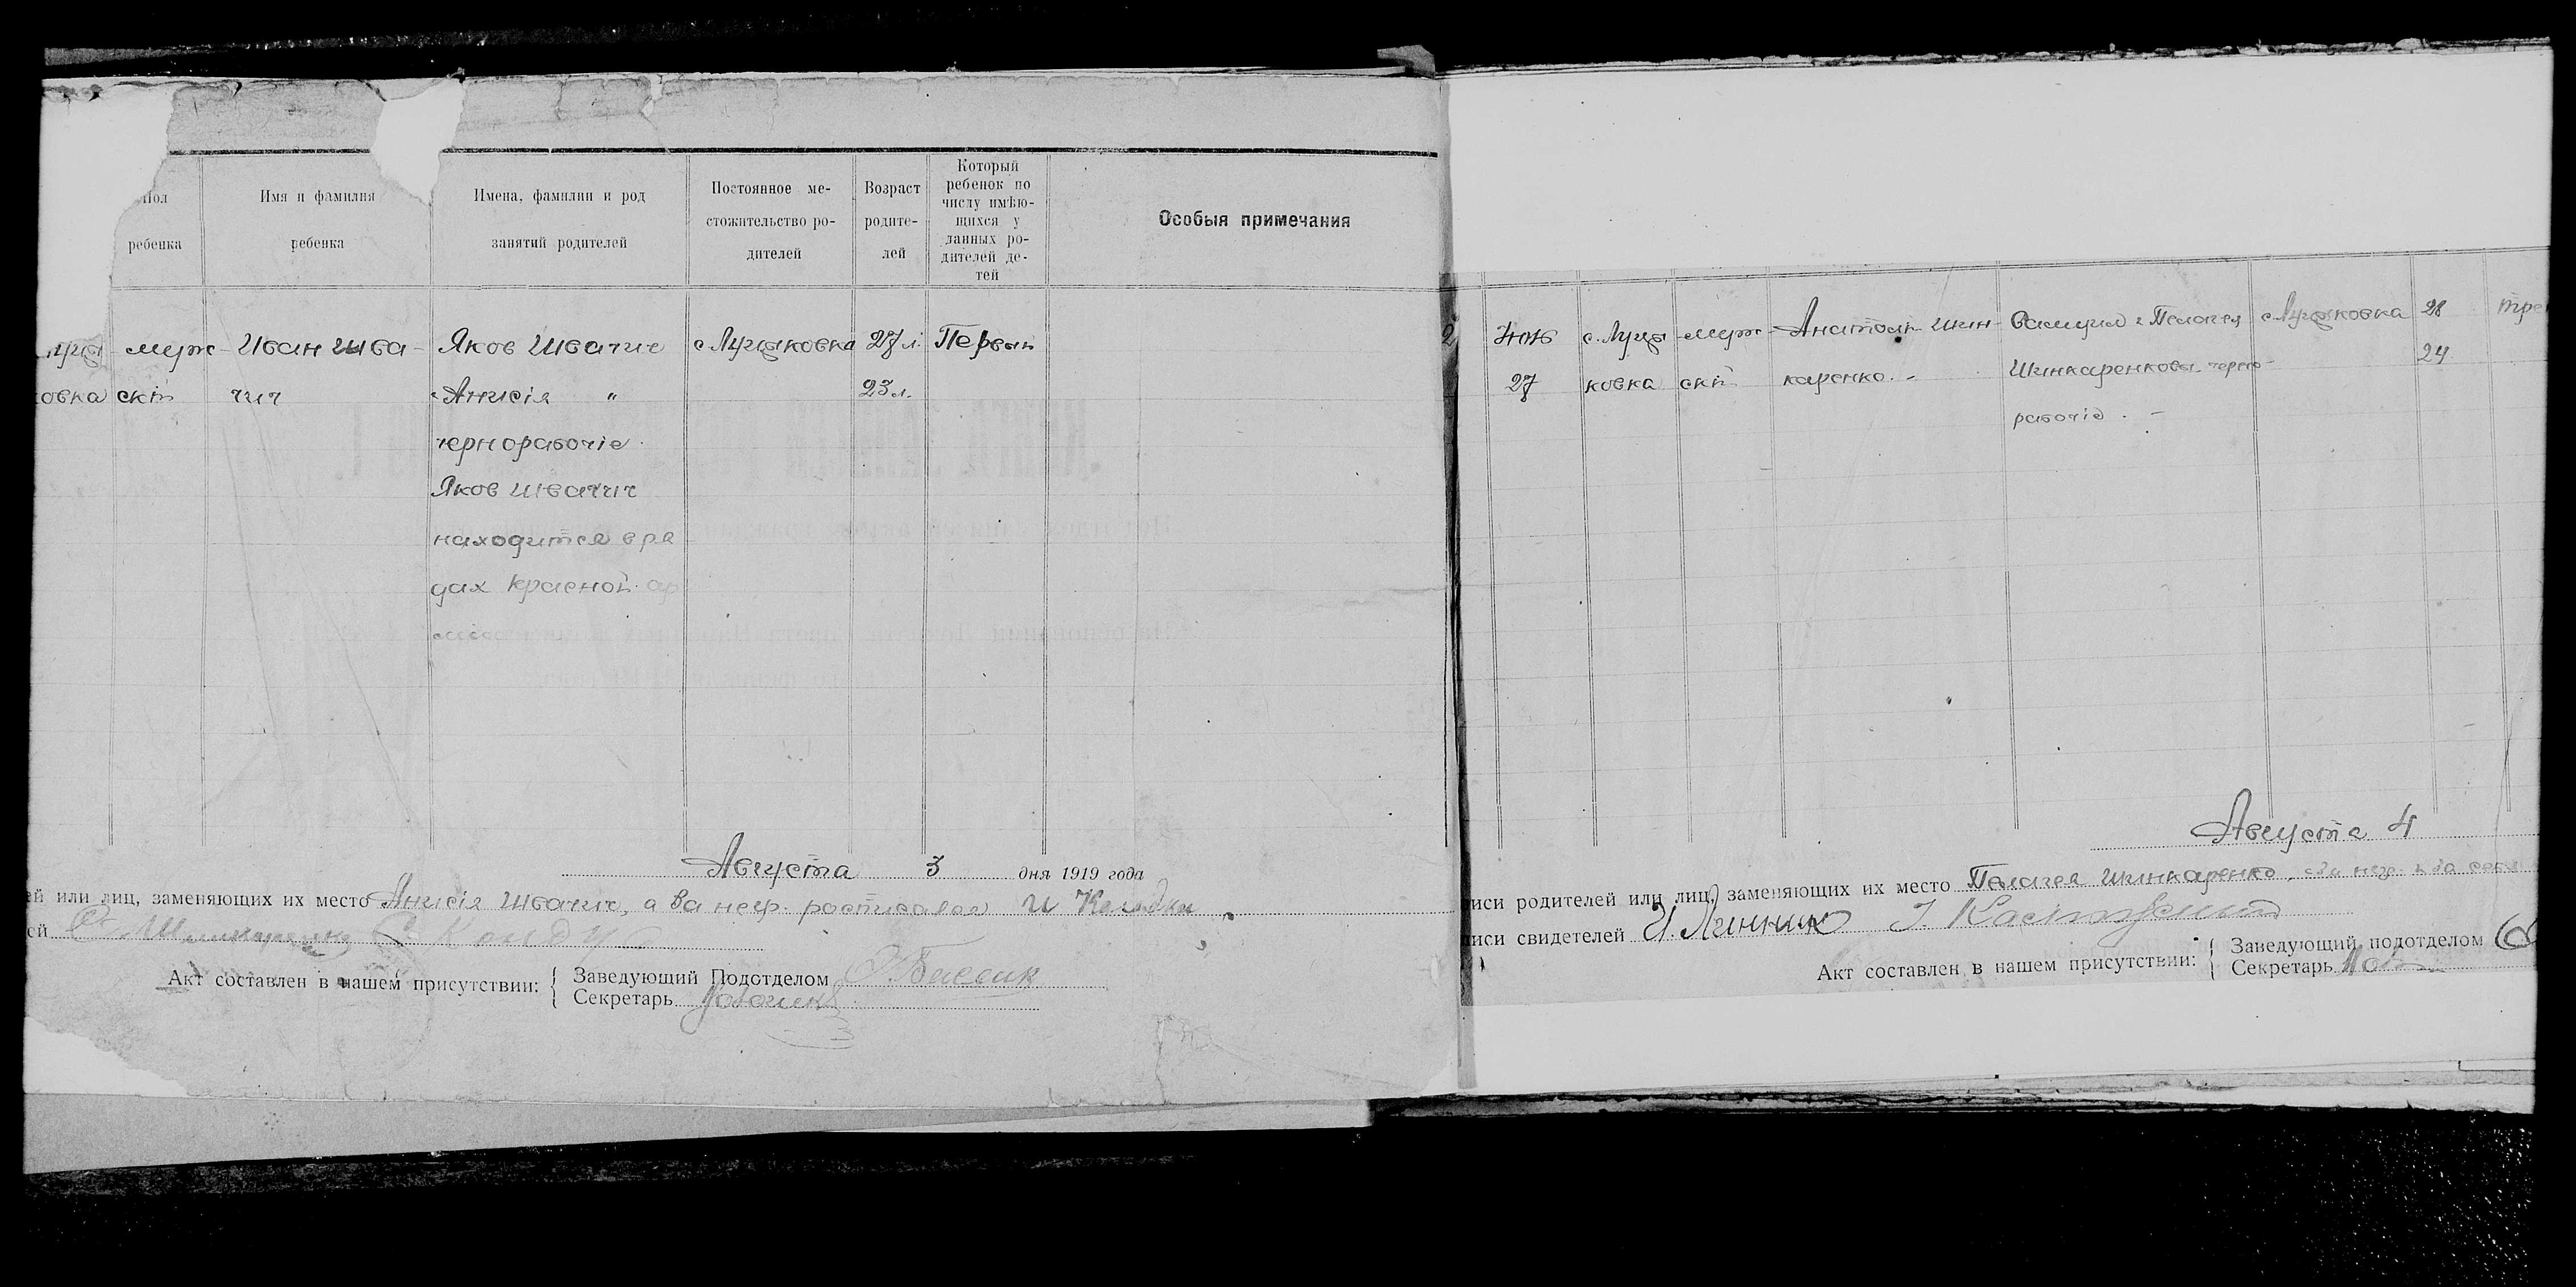 Пол
ребенка
Имя и фамилия
ребенка
Имена, фамилии и род
занятий родителей
Постоянное ме-
стожительство ро-
дителей
Возраст
родите-
лей
Который
ребенок по
числу имѣю-
щихся у
данных ро-
дителей де-
тей
Особыя примечания
овка
муж-
скй
Иван Шва-
чич
Яков Швачич
и Анисія "
чернорабочіе.
Яков Швачич
находится в ря
дах Красной ар
с Луцыковка
27 л.
23 л.
Первый
Августа 3 дня 1919 года
ей или лиц, заменяющих их место Анисія Швачич, а за негр. росписался И
ей
Акт составлен в нашем присутствии:
Заведующий Подотделом
Секретарь
2
27
с. Луцы
ковка
муж-
скй
Анатолй Шин-
каренко. -
и Пелагея
Шинкаренковы черно-
рабочіе. -
с Луцыковка
28
24
тре
Августа 4
писи родителей или лиц, заменяющих их место Пелагея Шинкаренко, за негр. и за себя
писи свидетелей И. Линник
Акт составлен в нашем присутствии:
Заведующий подотделом
Секретарь